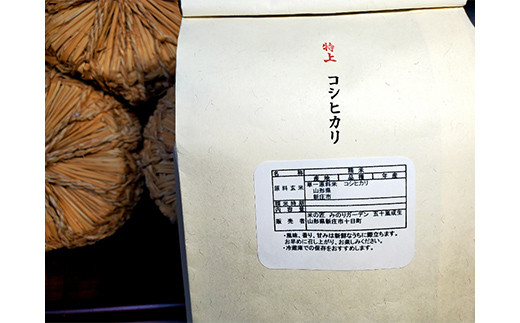 特上
コシヒカリ
名 称 精米
原料玄米 産地 品種 年産
単一原料米 コシヒカリ
山形県
新庄市
精米時期
内容量
販売者 米の匠 みのりガーデン 五十嵐成生
山形県新庄市十日町
・風味、香り、甘みは新鮮なうちに際立ちます。
お早めに召し上がり、お楽しみください。
・冷蔵庫での保存をおすすめします。